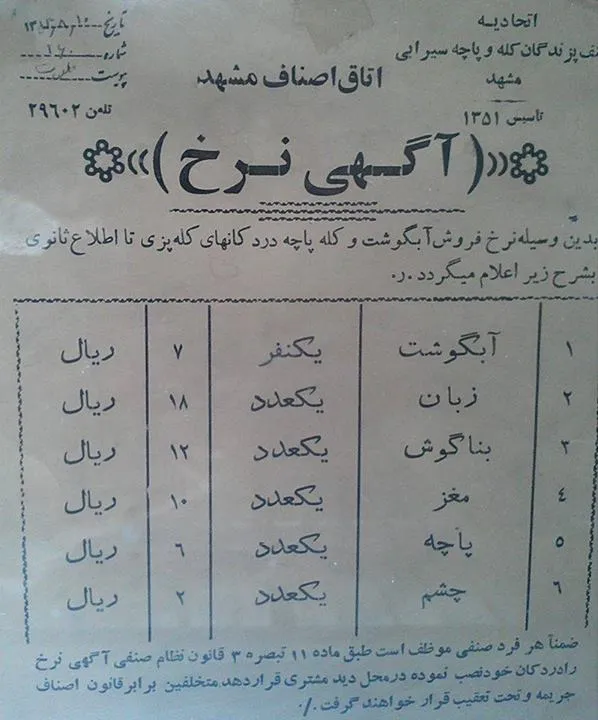 اتحادیه
صنف پزندگان کله و پاچه سیرابی
مشهد
تاسیس ۱۳۵۱
اتاق اصناف مشهد
تاریخ
شماره
پیوست
تلفن ۲۹۶۰۲
((آگهی نرخ))
بدین وسیله نرخ فروش آبگوشت و کله پاچه در دکانهای کله پزی تا اطلاع ثانوی
بشرح زیر اعلام میگردد.ر.
۱ آبگوشت یکنفر ۷ ریال
۲ زبان یکعدد ۱۸ ریال
۳ بناگوش یکعدد ۱۲ ریال
۴ مغز یکعدد ۱۰ ریال
۵ پاچه یکعدد ۶ ریال
۶ چشم یکعدد ۲ ریال
ضمنآ هر فرد صنفی موظف است طبق ماده ۱۱ تبصره ۳ قانون نظام صنفی آگهی نرخ
رادردکان خودنصب نموده درمحل دید مشتری قراردهد.متخلفین برابرقانون اصناف
جریمه وتحت تعقیب قرار خواهند گرفت ./.